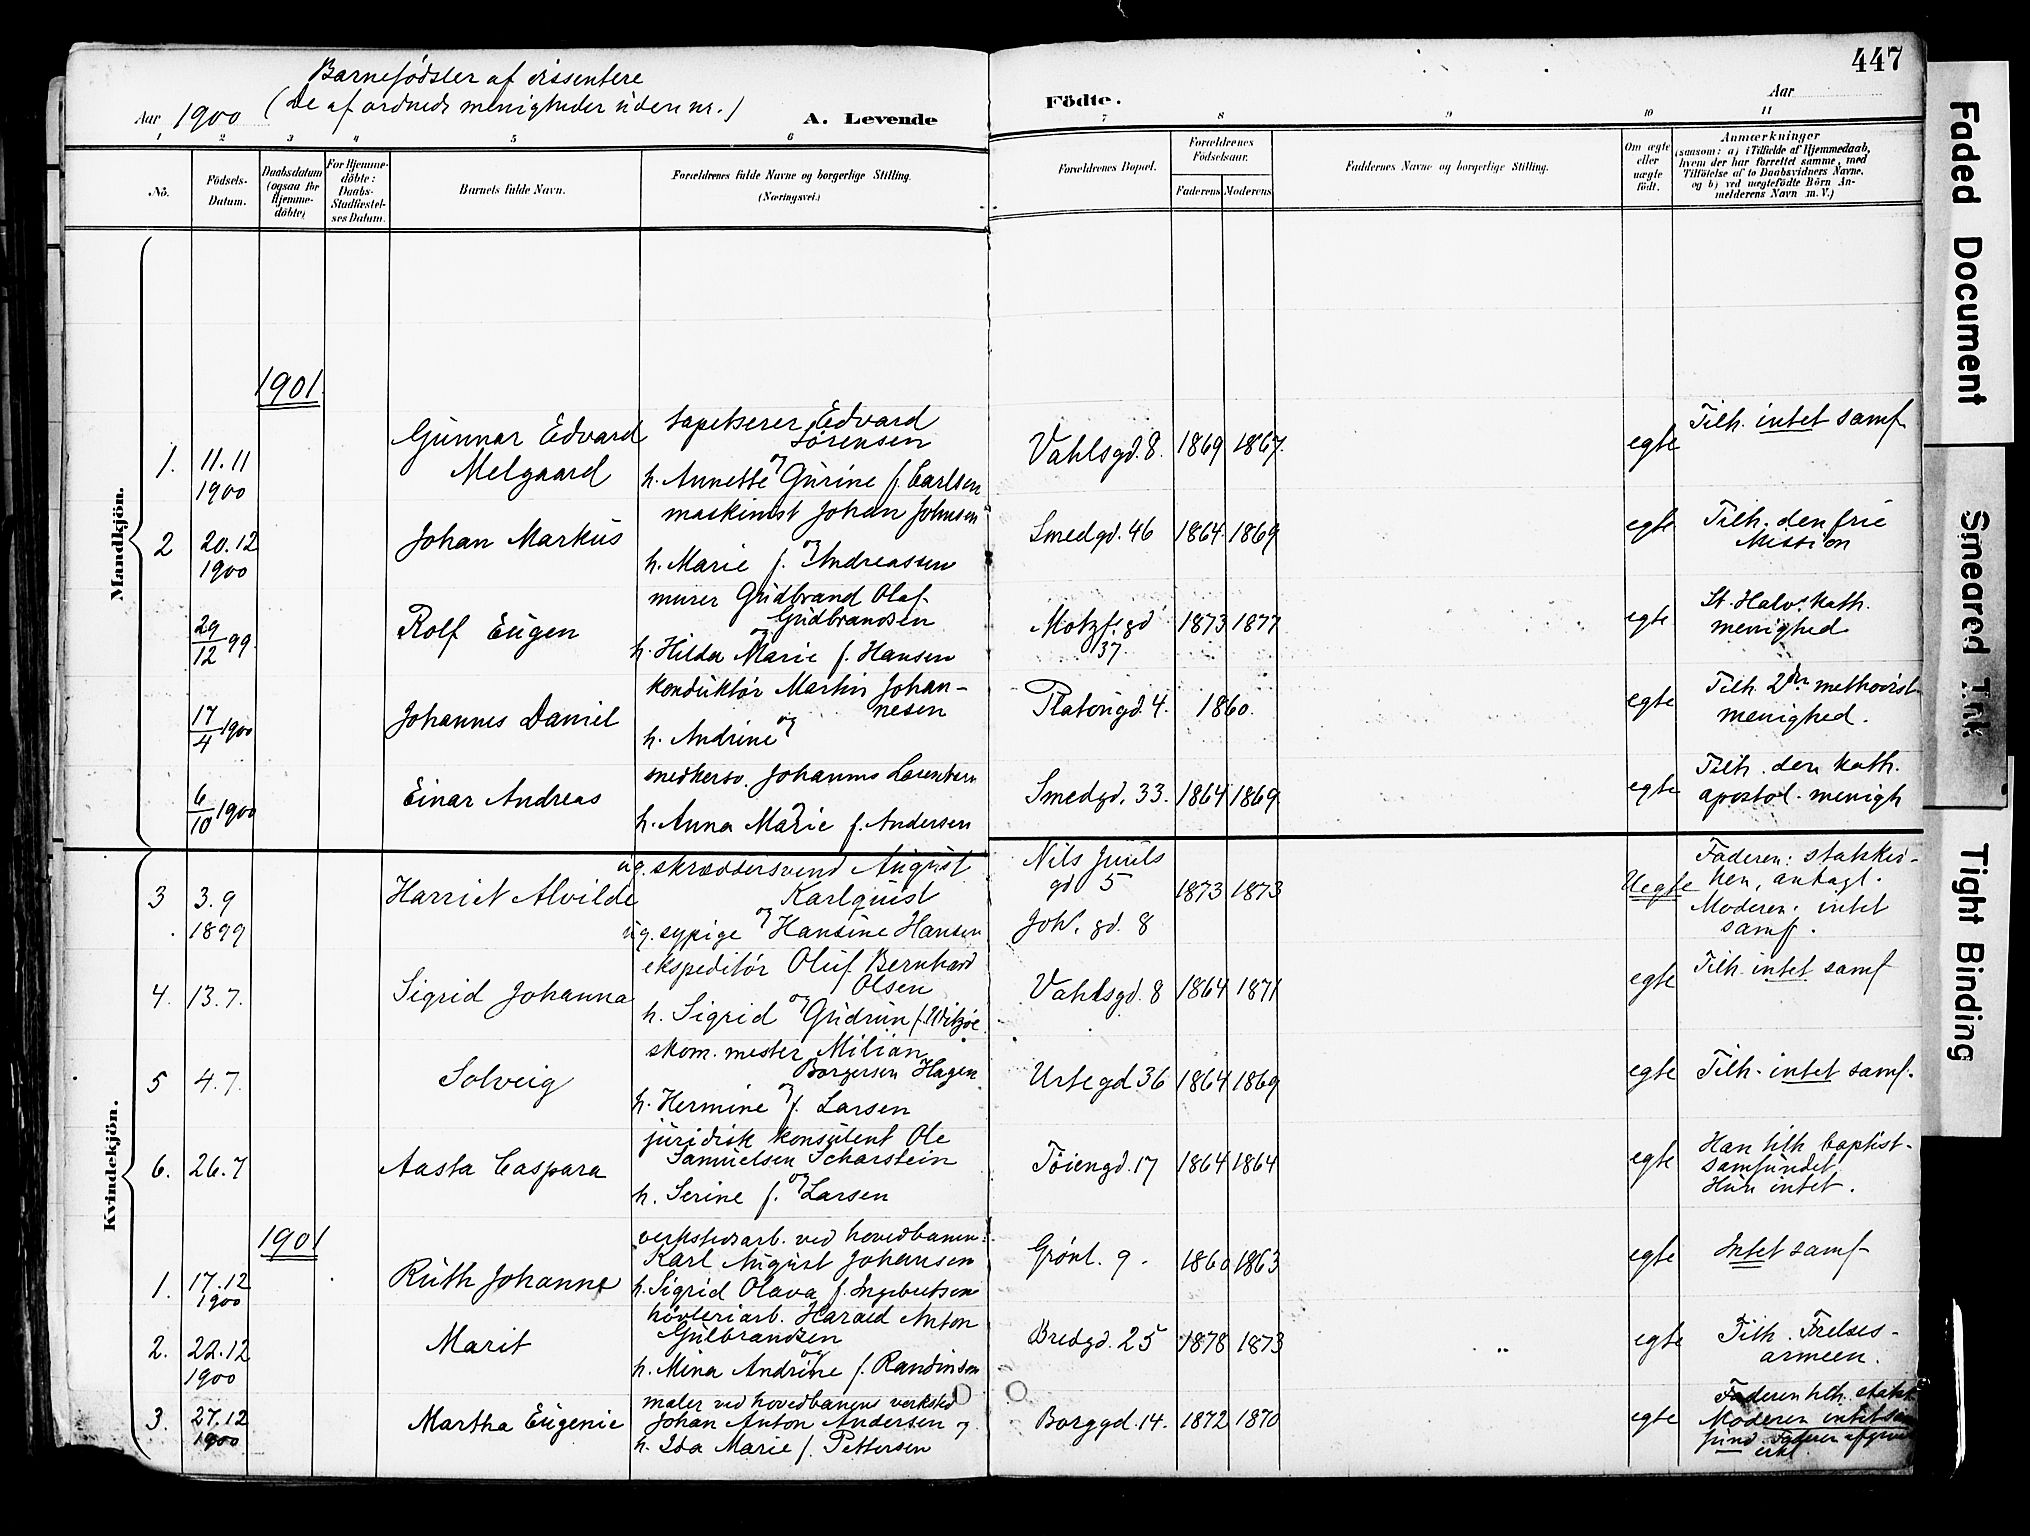 447
Barnefödsler af dissentere
(De af ordnede menigheder uden nr.)
Aar 1900
A. Levende
Födte.
Aar
1 2 3 4 5 6 7 8 9 10 11
Nô.
Födsels-
Datum.
Daabsdatum
(ogsaa for
Hjemme-
döbte)
For Hjemme-
döbte:
Daabs-
Stadfæstel-
ses Datum.
Barnets fulde Navn.
Forældrenes fulde Navne og borgerlige Stilling.
(Næringsvei.)
Forældrenes Bopæl.
Forældrenes
Födselsaar.
Faderens Moderens
Faddernes Navne og borgerlige Stilling.
Om ægte
eller
uægte
födt.
Anmærkninger
(saasom: a) i Tilfælde af Hjemmedaab,
hvem der har forrettet samme, med
Tilföielse af to Daabsvidners Navne,
og b) ved uegtefödte Börn An-
melderens Navn m. V.)
Mandkjön.
1901
1. 11.11
1900
Gunnar Edvard
Melgaard
tapetserer Edvard
Sörensen
og
h. Annette Gurine f. Carlsen
Vahlsgd. 8. 1869 1867. egte
Tilh. intet samf
2 20.12
1900
Johan Markus
maskinist Johan Johnsen
og
h. Marie f. Andreassen
Smedgd. 46 1864 1869 egte
Tilh. den frie
Mission
29/12 99
Rolf Eugen
murer Gudbrand Olaf
Gudbrandsen
og
h. Hilda Marie f. Hansen
Motzfgd
37
1873 1877 egte
St. Halv. kath.
menighed
17/4 1900
Johannes Daniel
konduktör Martin Johan-
nesen
og
h. Andrine
Platougd. 4. 1860. egte
Tilh. 2den methodist
menighed.
6/10 1900
Einar Andreas
snedkersv. Johannes
og
h. Anna Marie f. Andersen
Smedgd. 33. 1864 1869 egte
Tilh. den kath.
apostol. menigh
Kvindekjön.
3 3.9
1899
Harriet Alvilde
ug. skræddersvend August
Karlquist
og
ug. sypige Hansine Hansen
Nils Juuls
gd 5
Joh. gd. 8
1873 1873 Uegte
Faderen: statskir-
ken, antagl.
Moderen: intet
samf.
4. 13.7.
Sigrid Johanna
ekspeditör Oluf Bernhard
Olsen
og
h. Sigrid Gudrun f.
Vahlsgd. 8 1864 1871 egte
Tilh. intet samf
5 4.7.
Solveig
skom. mester Milian
Borgersen Hagen
og
h. Hermine f. Larsen
Urtegd 36 1864 1869 egte
Tilh. intet samf.
6. 26.7
Aasta Caspara
juridisk konsulent Ole
Samuelsen Scharstein
og
h. Serine f. Larsen
Töiengd. 17 1864 1864 egte
Han tilh baptist-
samfundet.
Hun intet.
1901
1. 17.12
1900
Ruth Johanne
verkstedsarb. ved hovedbanen:
Karl August Johansen
h. Sigrid Olava f. Ingebretsen
Grönl. 9. 1860 1863 egte
Intet samf
2. 22.12
1900
Marit
hövleriarb. Harald Anton
Gulbrandsen
og
h. Mina Andrine f.
Bredgd. 25 1878 1873 egte
Tilh. Frelses-
armeen.
3. 27.12
1900
Martha Eugenie
maler ved hovedbanens verksted
Johan Anton Andersen og
h. Ida Marie f. Pettersen
Borggd. 14. 1872 1870 egte
Faderen tilh. statsk
Moderen intet sam
fund. Faderen
Faded Document
Smeared Ink
Tight Binding